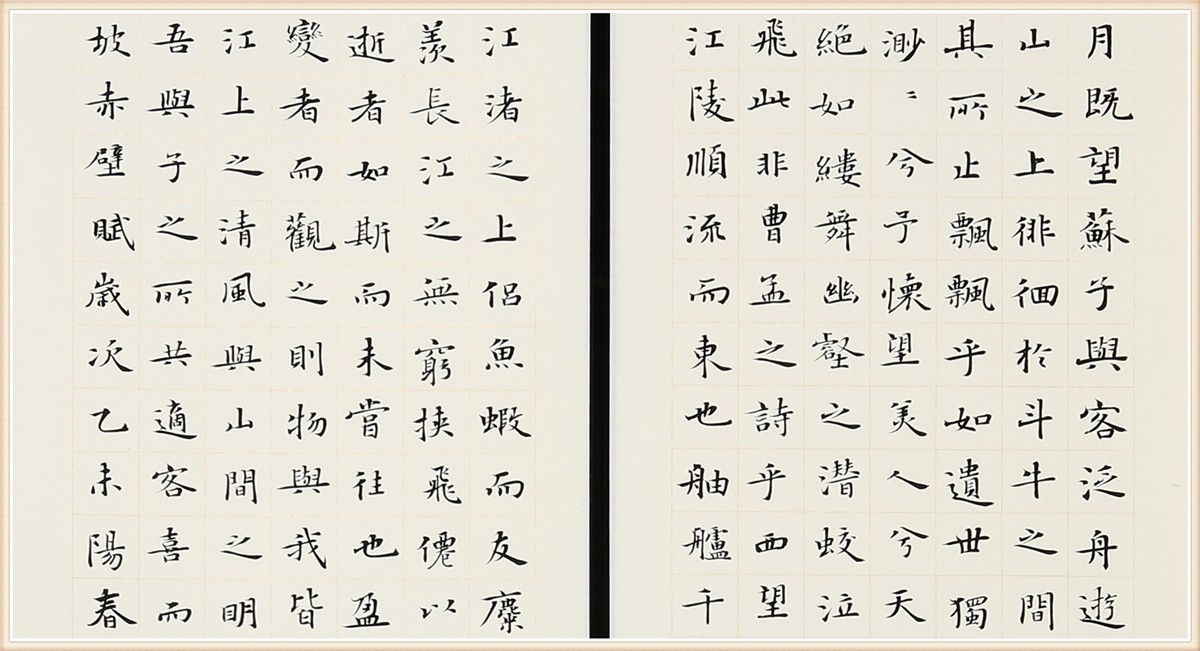 月既望蘇子與客泛舟遊
山之上徘徊於斗牛之間
其所止飄飄乎如遺世獨
渺〻兮予懷望美人兮天
絕如縷舞幽壑之潛蛟泣
飛此非曹孟之詩乎西望
江陵順流而東也舳艫千
江渚之上侶魚蝦而友麋
羨長江之無窮挾飛僊以
逝者如斯而未嘗往也盈
變者而觀之則物與我皆
江上之清風與山間之明
吾與子之所共適客喜而
坡赤壁賦歲次乙未陽春